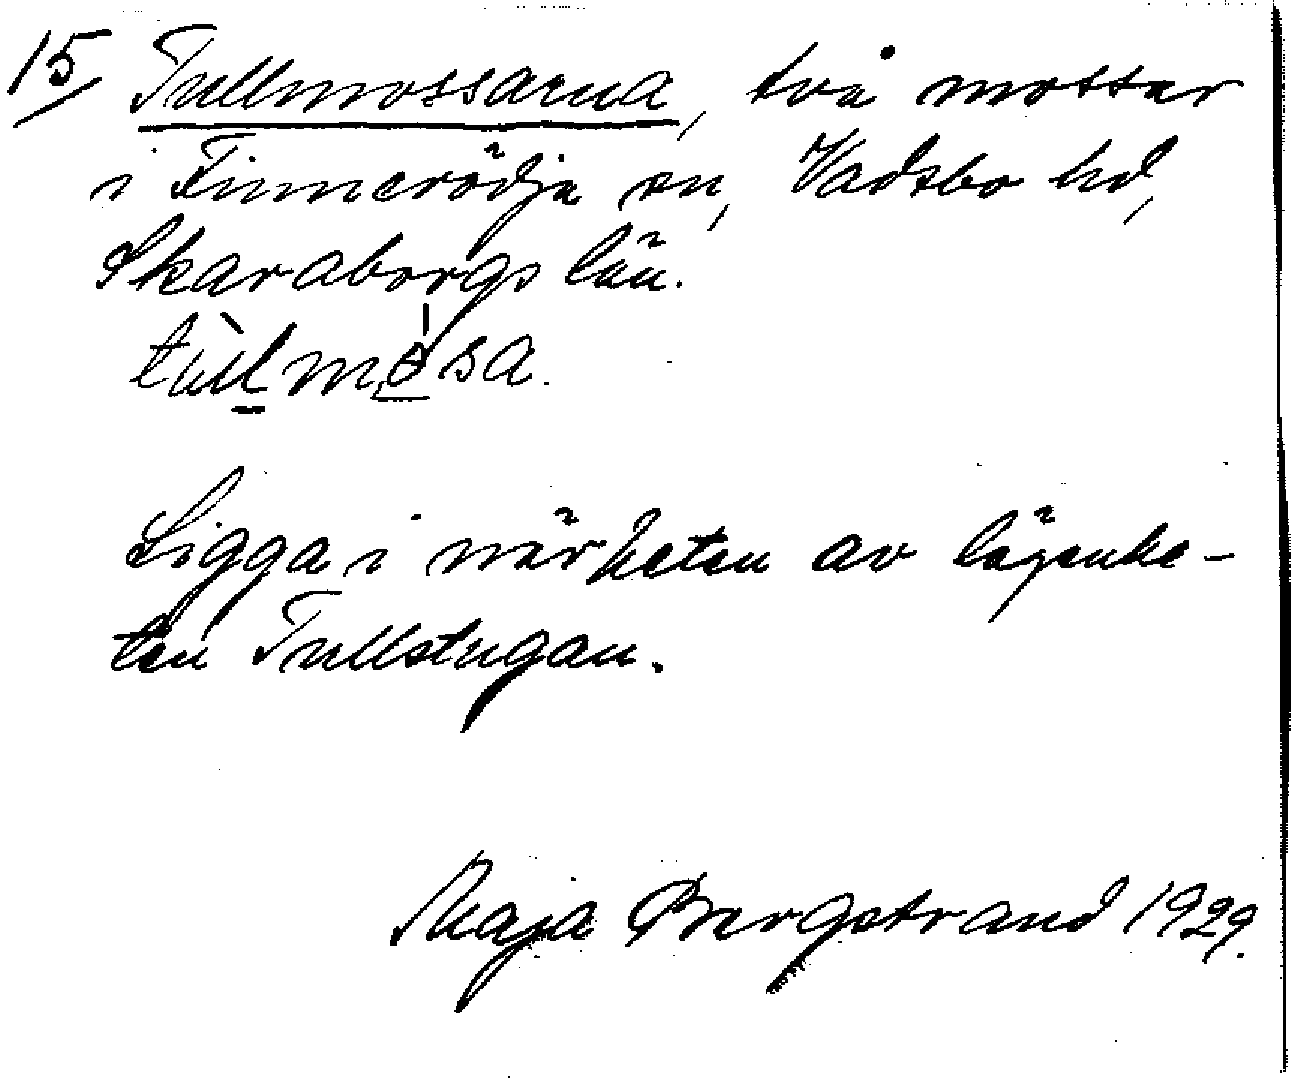 15/ Tullmossarna, två mossar
i Finnerödja sn, Vadsbo hd,
Skaraborgs län.
Ligga i närheten av lägenhe-
ten Tullstugan.
Maja Bergstrand 1929.